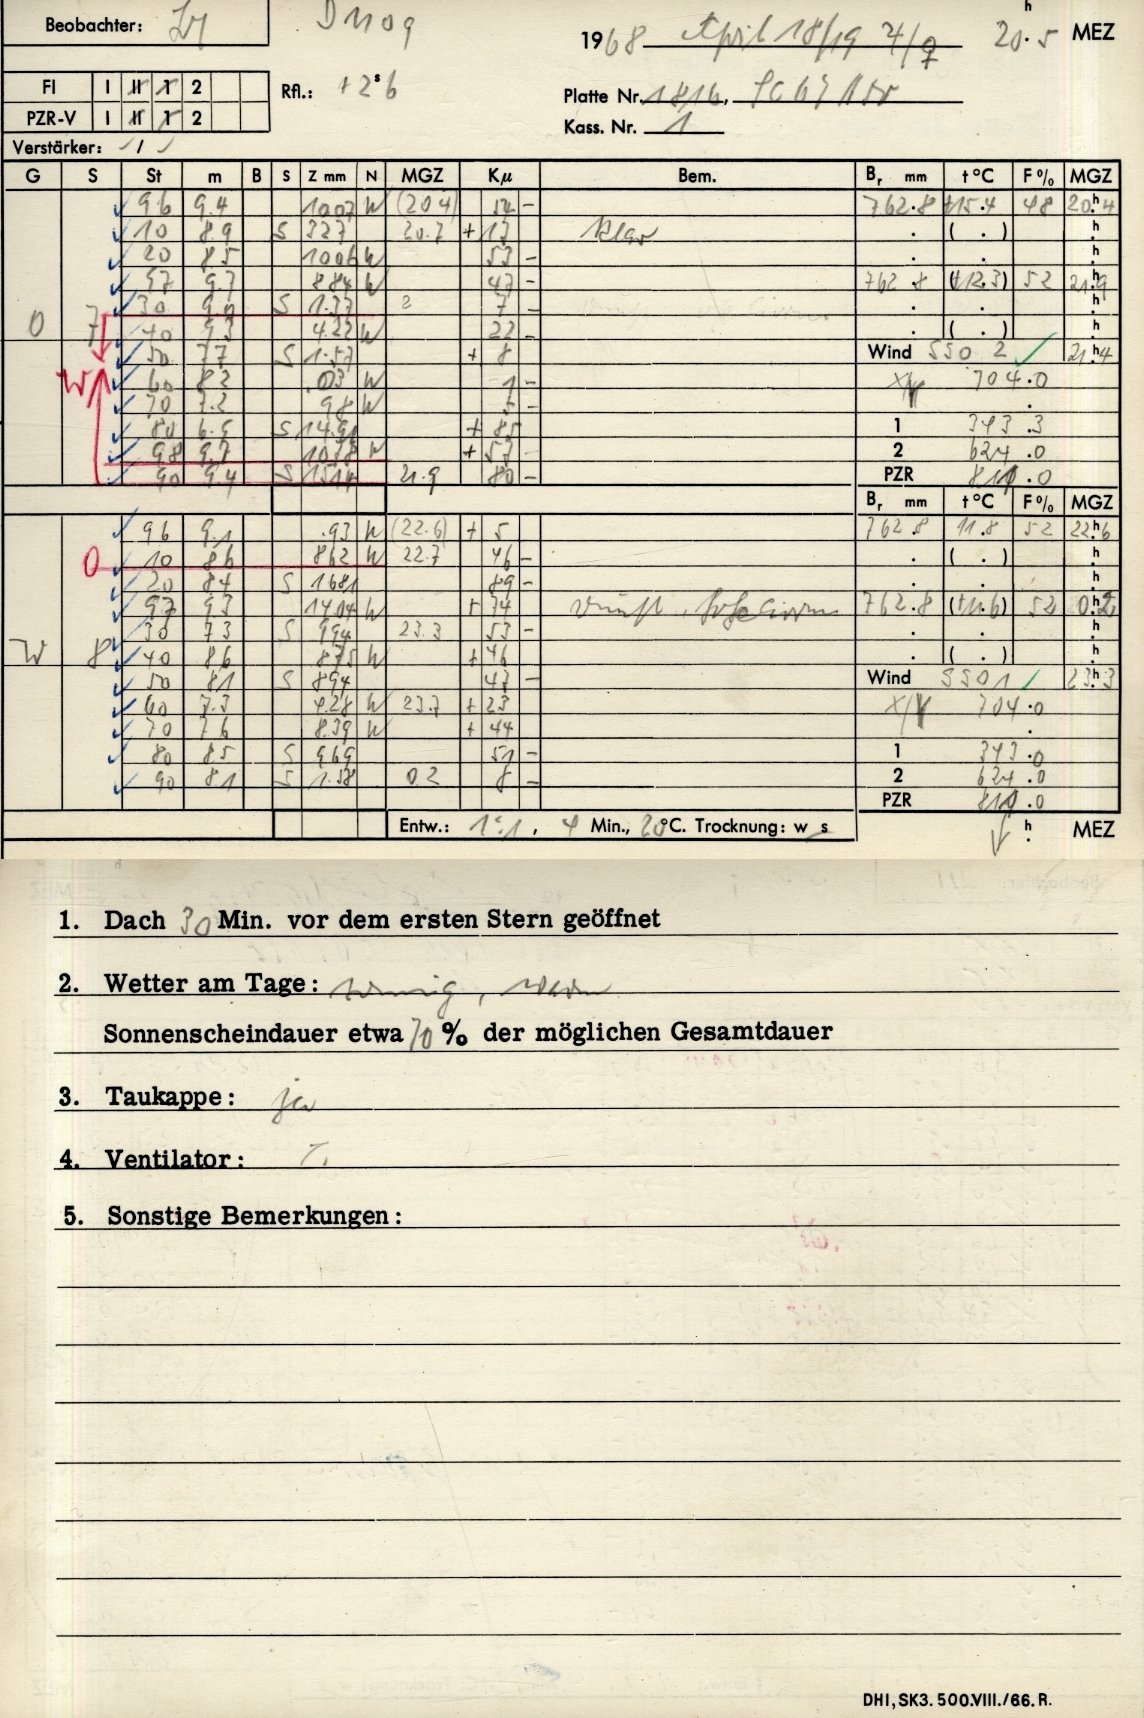 Beobachter:
1968 April 18/19 4/♀ 20.5 h MEZ
FI I II 1 2 Rfl.: +2 s 6
PZR-V I II 1 2 Platte Nr. 1816,
Kass. Nr. 1
Verstärker: 1
G S St m B S Z mm N MGZ Kμ Bem. Br mm t °C F % MGZ
96 9.4 1007 W (20 4) 54 – 762.8 +15.4 48 20 h 4
10 8.9 S 327 20.7 + 17 klar . ( . ) h
20 8.5 1006 W 53 – . . h
97 9.7 884 W 47 – 762 8 (+12.3) 52 21 h 9
30 9.0 S 1.37 7 – . . h
O 7 40 9.3 4.22 W 22 – . ( . ) h
50 7.7 S 1.57 + 8 Wind SSO 2 21 h 4
W 60 8.2 .03 W 1 – 704.0
70 7.2 98 W –
80 6.5 S 14.90 + 85 1 343.3
98 9.7 1038 W + 57 2 624.0
90 9.4 S 1514 21.9 80 – PZR .0
Br mm t °C F % MGZ
96 9.1 .93 W (22.6) + 5 762.8 11.8 52 22 h 6
O 10 8.6 862 W 22.7 46 – . ( . ) h
20 8.4 S 1681 89 – . . h
97 9.3 1404 W + 74 762.8 (11.6) 52 0 h 2
30 7.3 S 994 23.3 53 – . . h
W 8 40 8.6 875 W + 46 . ( . ) h
50 8.1 S 894 47 – Wind SSO 1 23 h 3
60 7.3 4.28 W 23.7 + 23 704.0
70 7.6 8.39 W + 44 .
80 8.5 S 969 51 – 1 343.0
90 8.1 S 1.58 0 2 8 – 2 624.0
PZR .0
Entw.: 1:1, 4 Min., 20 °C. Trocknung: w s h MEZ
1. Dach 30 Min. vor dem ersten Stern geöffnet
2. Wetter am Tage: sonnig, warm
Sonnenscheindauer etwa 70 % der möglichen Gesamtdauer
3. Taukappe: ja
4. Ventilator:
5. Sonstige Bemerkungen:
DHI, SK3. 500.VIII./66. R.